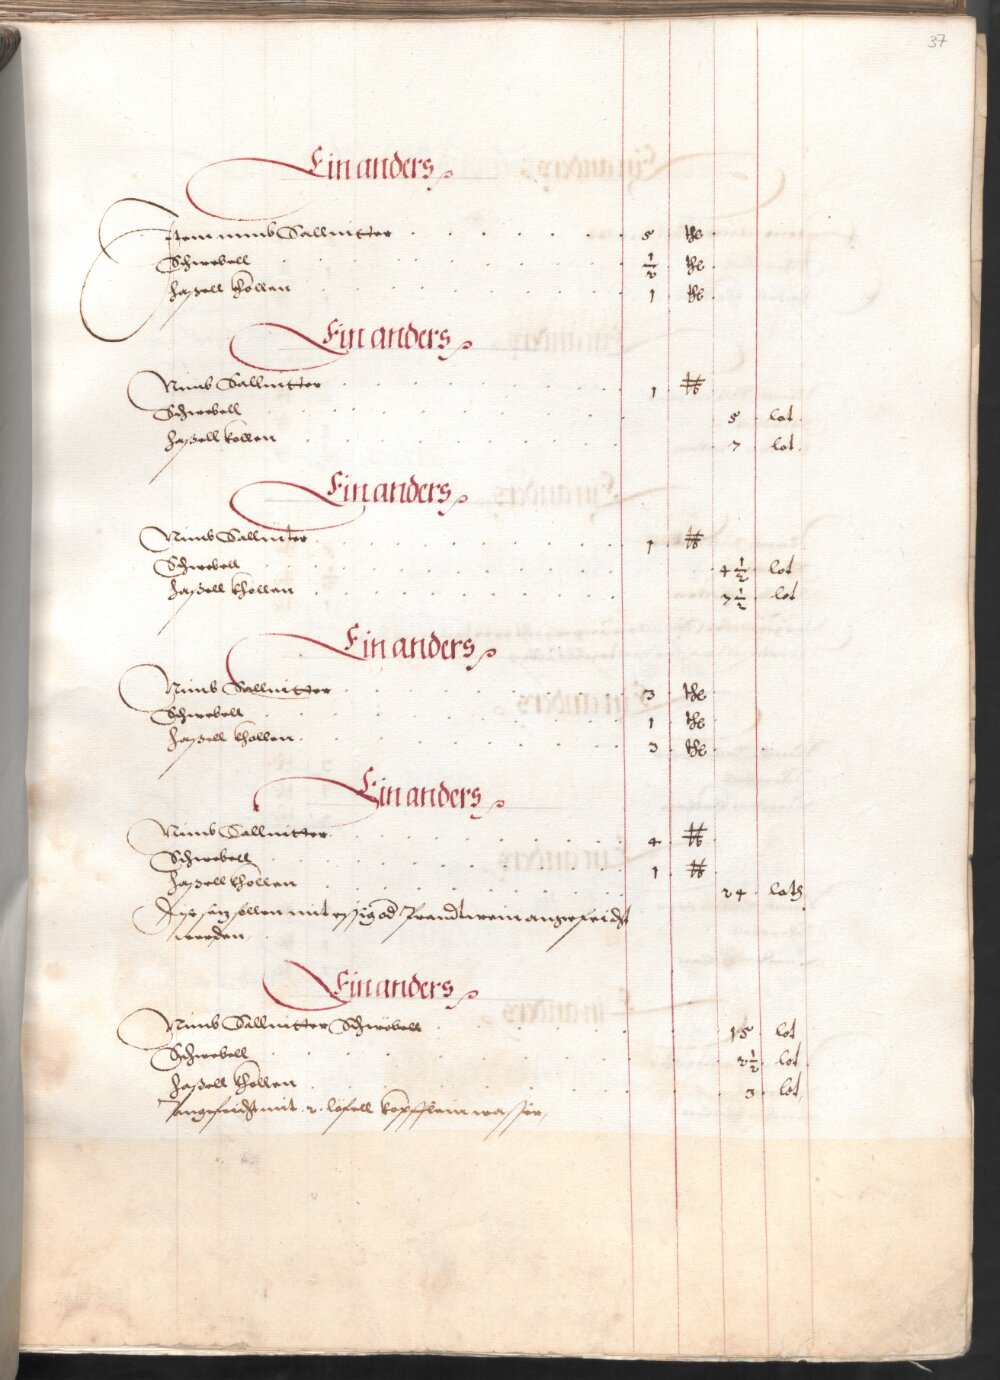 37
Ein anders
Item nimb Sallnitter 5 lb
Schwebell ½ lb
haßell khollen 1 lb
Ein anders
Nimb Sallnitter 1 lb
Schwebell 5 lot
haßell kollen 7 lot
Ein anders
Nimb Sallniter 1 lb
Schwebell 4½ lot
haßell khollen 7½ lot
Ein anders
Nimb Sallnitter 3 lb
Schwebell 1 lb
haßell khollen 3 lb
Ein anders
Nimb Sallnitter 4 lb
Schwebell 1 lb
haßell khollen 24 loth
sollen mit essig od Prandtwein angefeicht
werden
Ein anders
Nimb Sallnitter Schwebell 15 lot
Schwebell 2½ lot
haßell khollen 3 lot
angefeicht mit 2 löfell wasser